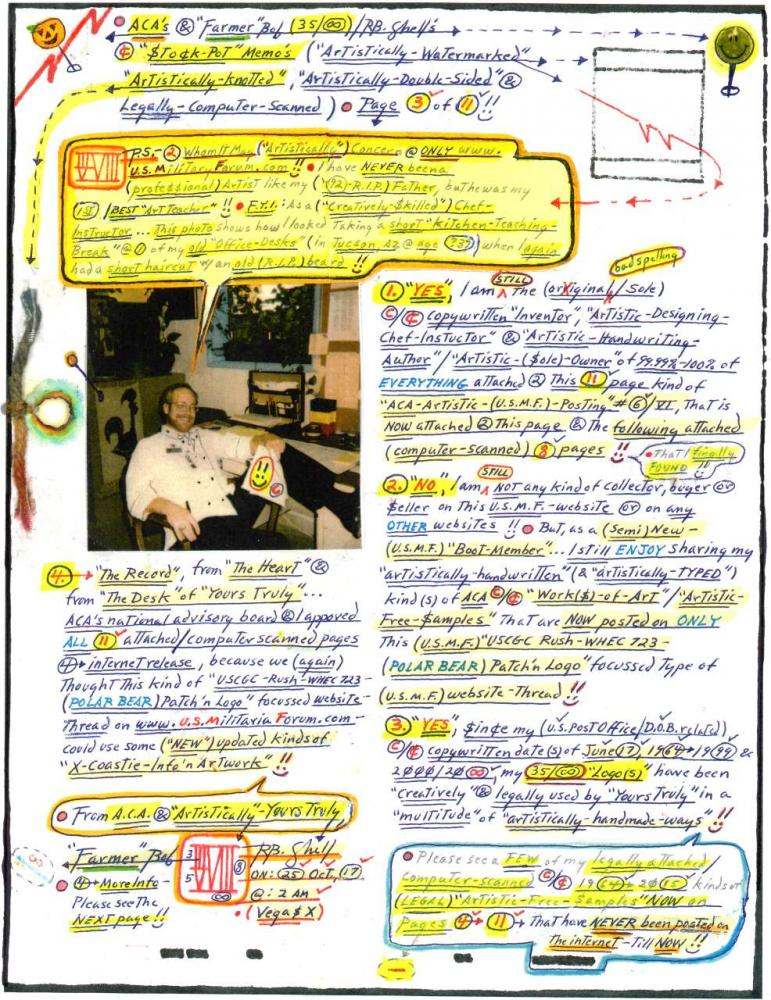 • ACA's & "Farmer" Bof (35/∞)/RB. Shell's
¢ "$To¢k-PoT" Memo's ("ArTisTically-WaTermarked"
"ArTisTically-KnoTTed", "ArTisTically-Double-Sided" &
Legally-CompuTer-Scanned) • Page 3 of 11 !!
P.S.- 2 Whom IT May ("ArTisTically") Concern @ ONLY www.
U.S.MiliTary Forum.com !! • I have NEVER been a
(professional) ArTisT like my ( R.I.P.) FaTher, buT he was my
1sT/BEST "ArT Teacher" !! • F.Y.I.: As a ("CreaTively-$killed") Chef-
InsTrucTor... This phoTo shows how I looked Taking a shorT "KiTchen-Teaching-
Break" @ 1 of my old "Office-Desks" (in Tucson, AZ @ age ) when I again
had a shorT haircuT w/ an old (R.I.P.) beard !!
bad spelling
1. "YES", I am STILL The (original/Sole)
©/¢ copywriTTen "InvenTor", "ArTisTic-Designing-
Chef-InsTucTor" & "ArTisTic-HandwriTing-
AuThor"/"ArTisTic-($ole)-Owner" of 99.99%-100% of
EVERYTHING aTTached 2 This 11 page kind of
"ACA-ArTisTic-(U.S.M.F.)-PosTing" # 6/VI, ThaT is
NOW aTTached 2 This page & The following aTTached
(compuTer-scanned) 8 pages !!
• ThaT I finally
FOUND !!
2. "NO", I am STILL NOT any kind of collecTor, buyer or
$eller on This U.S.M.F.-websiTe or on any
OTHER websiTes !! • BuT, as a (Semi) New-
(U.S.M.F.) "BooT-Member"... I sTill ENJOY Sharing my
"arTisTically-handwriTTen" (& "arTisTically-TYPED")
kind(s) of ACA ©/¢ "Work($)-of-ArT"/"ArTisTic-
Free-$amples" ThaT are NOW posTed on ONLY
This (U.S.M.F.) "USCGC Rush-WHEC 723-
(POLAR BEAR) PaTch'n Logo" focussed Type of
(U.S.M.F.) websiTe-Thread !!
3. "YES", $ince my (U.S. PosT Office/D.O.B. relaTed)
©/¢ copywriTTen daTe(s) of June 17, 1964→1999 &
2000/20∞ my 35/∞ "Logo(s)" have been
"creaTively" & legally used by "Yours Truly" in a
"mulTiTude" of "arTisTically-handmade-ways" !!
• Please see a FEW of my legally aTTached/
CompuTer-scanned ©/¢ 1964→2015 kinds of
(LEGAL) "ArTisTic-Free-Samples" NOW on
Pages 4→11→ ThaT have NEVER been posTed on
The inTerneT-Till NOW !!
4.→ "The Record", from "The HearT" &
from "The Desk" of "Yours Truly"...
ACA's naTional advisory board & I appoved
ALL 11 aTTached/compuTer scanned pages
4→ inTerneT release, because we (again)
ThoughT This kind of "USCGC-Rush-WHEC 723-
(POLAR BEAR) PaTch'n Logo" focussed websiTe-
Thread on www.U.S.MiliTaria Forum.com-
could use some ("NEW") updaTed kinds of
"X-CoasTie-Info'n ArTwork" !!
• From A.C.A. & "ArTisTically"-Yours Truly
"Farmer" Bof
• 4→ More Info-
Please see The
NEXT page !!
3
5
8
∞
RB. Shell
ON: 25 OcT, 17
@: 2 AM
• (Vega$ X)